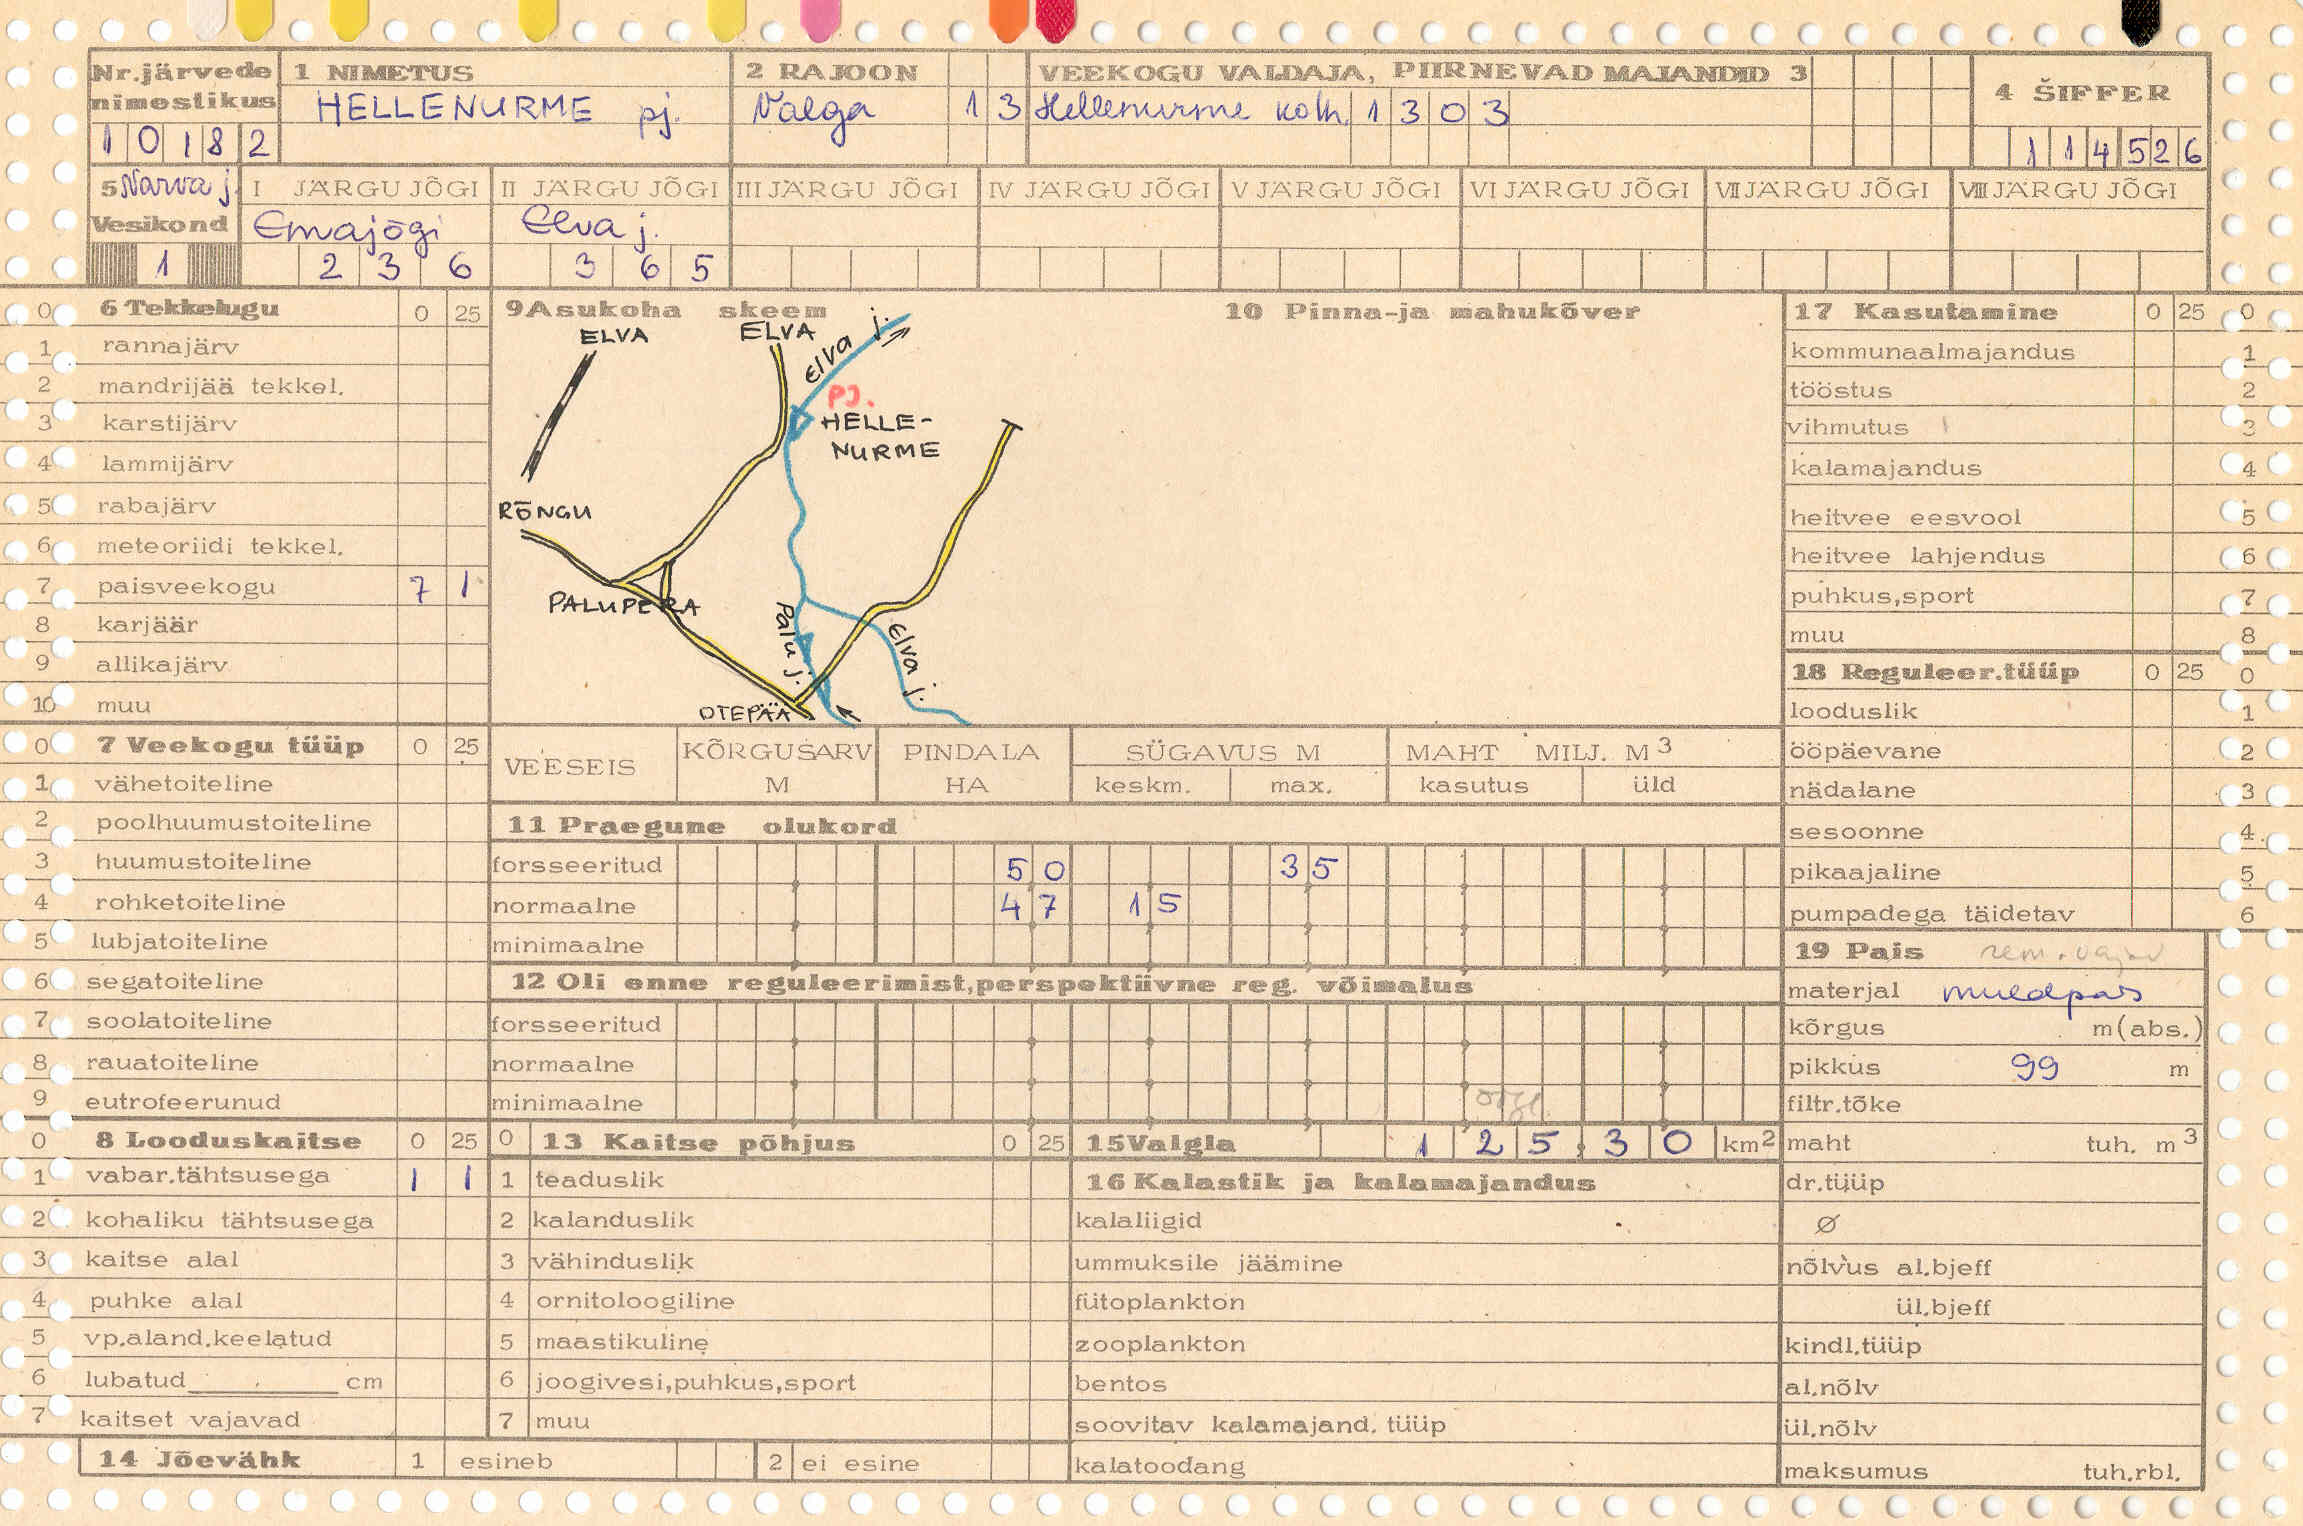 Nr.järvede nimestikus
1 0 1 8 2
1 NIMETUS
HELLENURME pj.
2 RAJOON
Valga 1 3
VEEKOGU VALDAJA, PIIRNEVAD MAJANDID 3
Hellenurme kolh. 1 3 0 3
4 ŠIFFER
1 1 4 5 2 6
5 Narva j.
Vesikond
1
I JÄRGU JÕGI
Emajõgi
2 3 6
II JÄRGU JÕGI
Elva j.
3 6 5
III JÄRGU JÕGI
IV JÄRGU JÕGI
V JÄRGU JÕGI
VI JÄRGU JÕGI
VII JÄRGU JÕGI
VIII JÄRGU JÕGI
0 6 Tekkelugu 0 25
1 rannajärv
2 mandrijää tekkel.
3 karstijärv
4 lammijärv
5 rabajärv
6 meteoriidi tekkel.
7 paisveekogu 7 1
8 karjäär
9 allikajärv
10 muu
0 7 Veekogu tüüp 0 25
1 vähetoiteline
2 poolhuumustoiteline
3 huumustoiteline
4 rohketoiteline
5 lubjatoiteline
6 segatoiteline
7 soolatoiteline
8 rauatoiteline
9 eutrofeerunud
0 8 Looduskaitse 0 25
1 vabar.tähtsusega 1 1
2 kohaliku tähtsusega
3 kaitse alal
4 puhke alal
5 vp.aland.keelatud
6 lubatud cm
7 kaitset vajavad
9 Asukoha skeem
ELVA
ELVA
Elva j.
PJ.
HELLE-
NURME
RÕNGU
PALUPERA
Palu j.
Elva j.
OTEPÄÄ
10 Pinna-ja mahukõver
VEESEIS
KÕRGUSARV M
PINDALA HA
SÜGAVUS M
keskm. max.
MAHT MILJ. M3
kasutus üld
11 Praegune olukord
forsseeritud 5 0 3 5
normaalne 4 7 1 5
minimaalne
12 Oli enne reguleerimist,perspektiivne reg. võimalus
forsseeritud
normaalne
minimaalne
0 13 Kaitse põhjus 0 25
1 teaduslik
2 kalanduslik
3 vähinduslik
4 ornitoloogiline
5 maastikuline
6 joogivesi,puhkus,sport
7 muu
14 Jõevähk 1 esineb 2 ei esine
15 Valgla 1 2 5 , 3 0 km2
16 Kalastik ja kalamajandus
kalaliigid
ummuksile jäämine
fütoplankton
zooplankton
bentos
soovitav kalamajand. tüüp
kalatoodang
17 Kasutamine 0 25 0
kommunaalmajandus 1
tööstus 2
vihmutus 3
kalamajandus 4
heitvee eesvool 5
heitvee lahjendus 6
puhkus,sport 7
muu 8
18 Reguleer.tüüp 0 25 0
looduslik 1
ööpäevane 2
nädalane 3
sesoonne 4
pikaajaline 5
pumpadega täidetav 6
19 Pais rem. vajav
materjal muldpais
kõrgus m(abs.)
pikkus 99 m
filtr.tõke
maht tuh. m3
dr.tüüp
Ø
nõlvus al.bjeff
ül.bjeff
kindl.tüüp
al.nõlv
ül.nõlv
maksumus tuh.rbl.